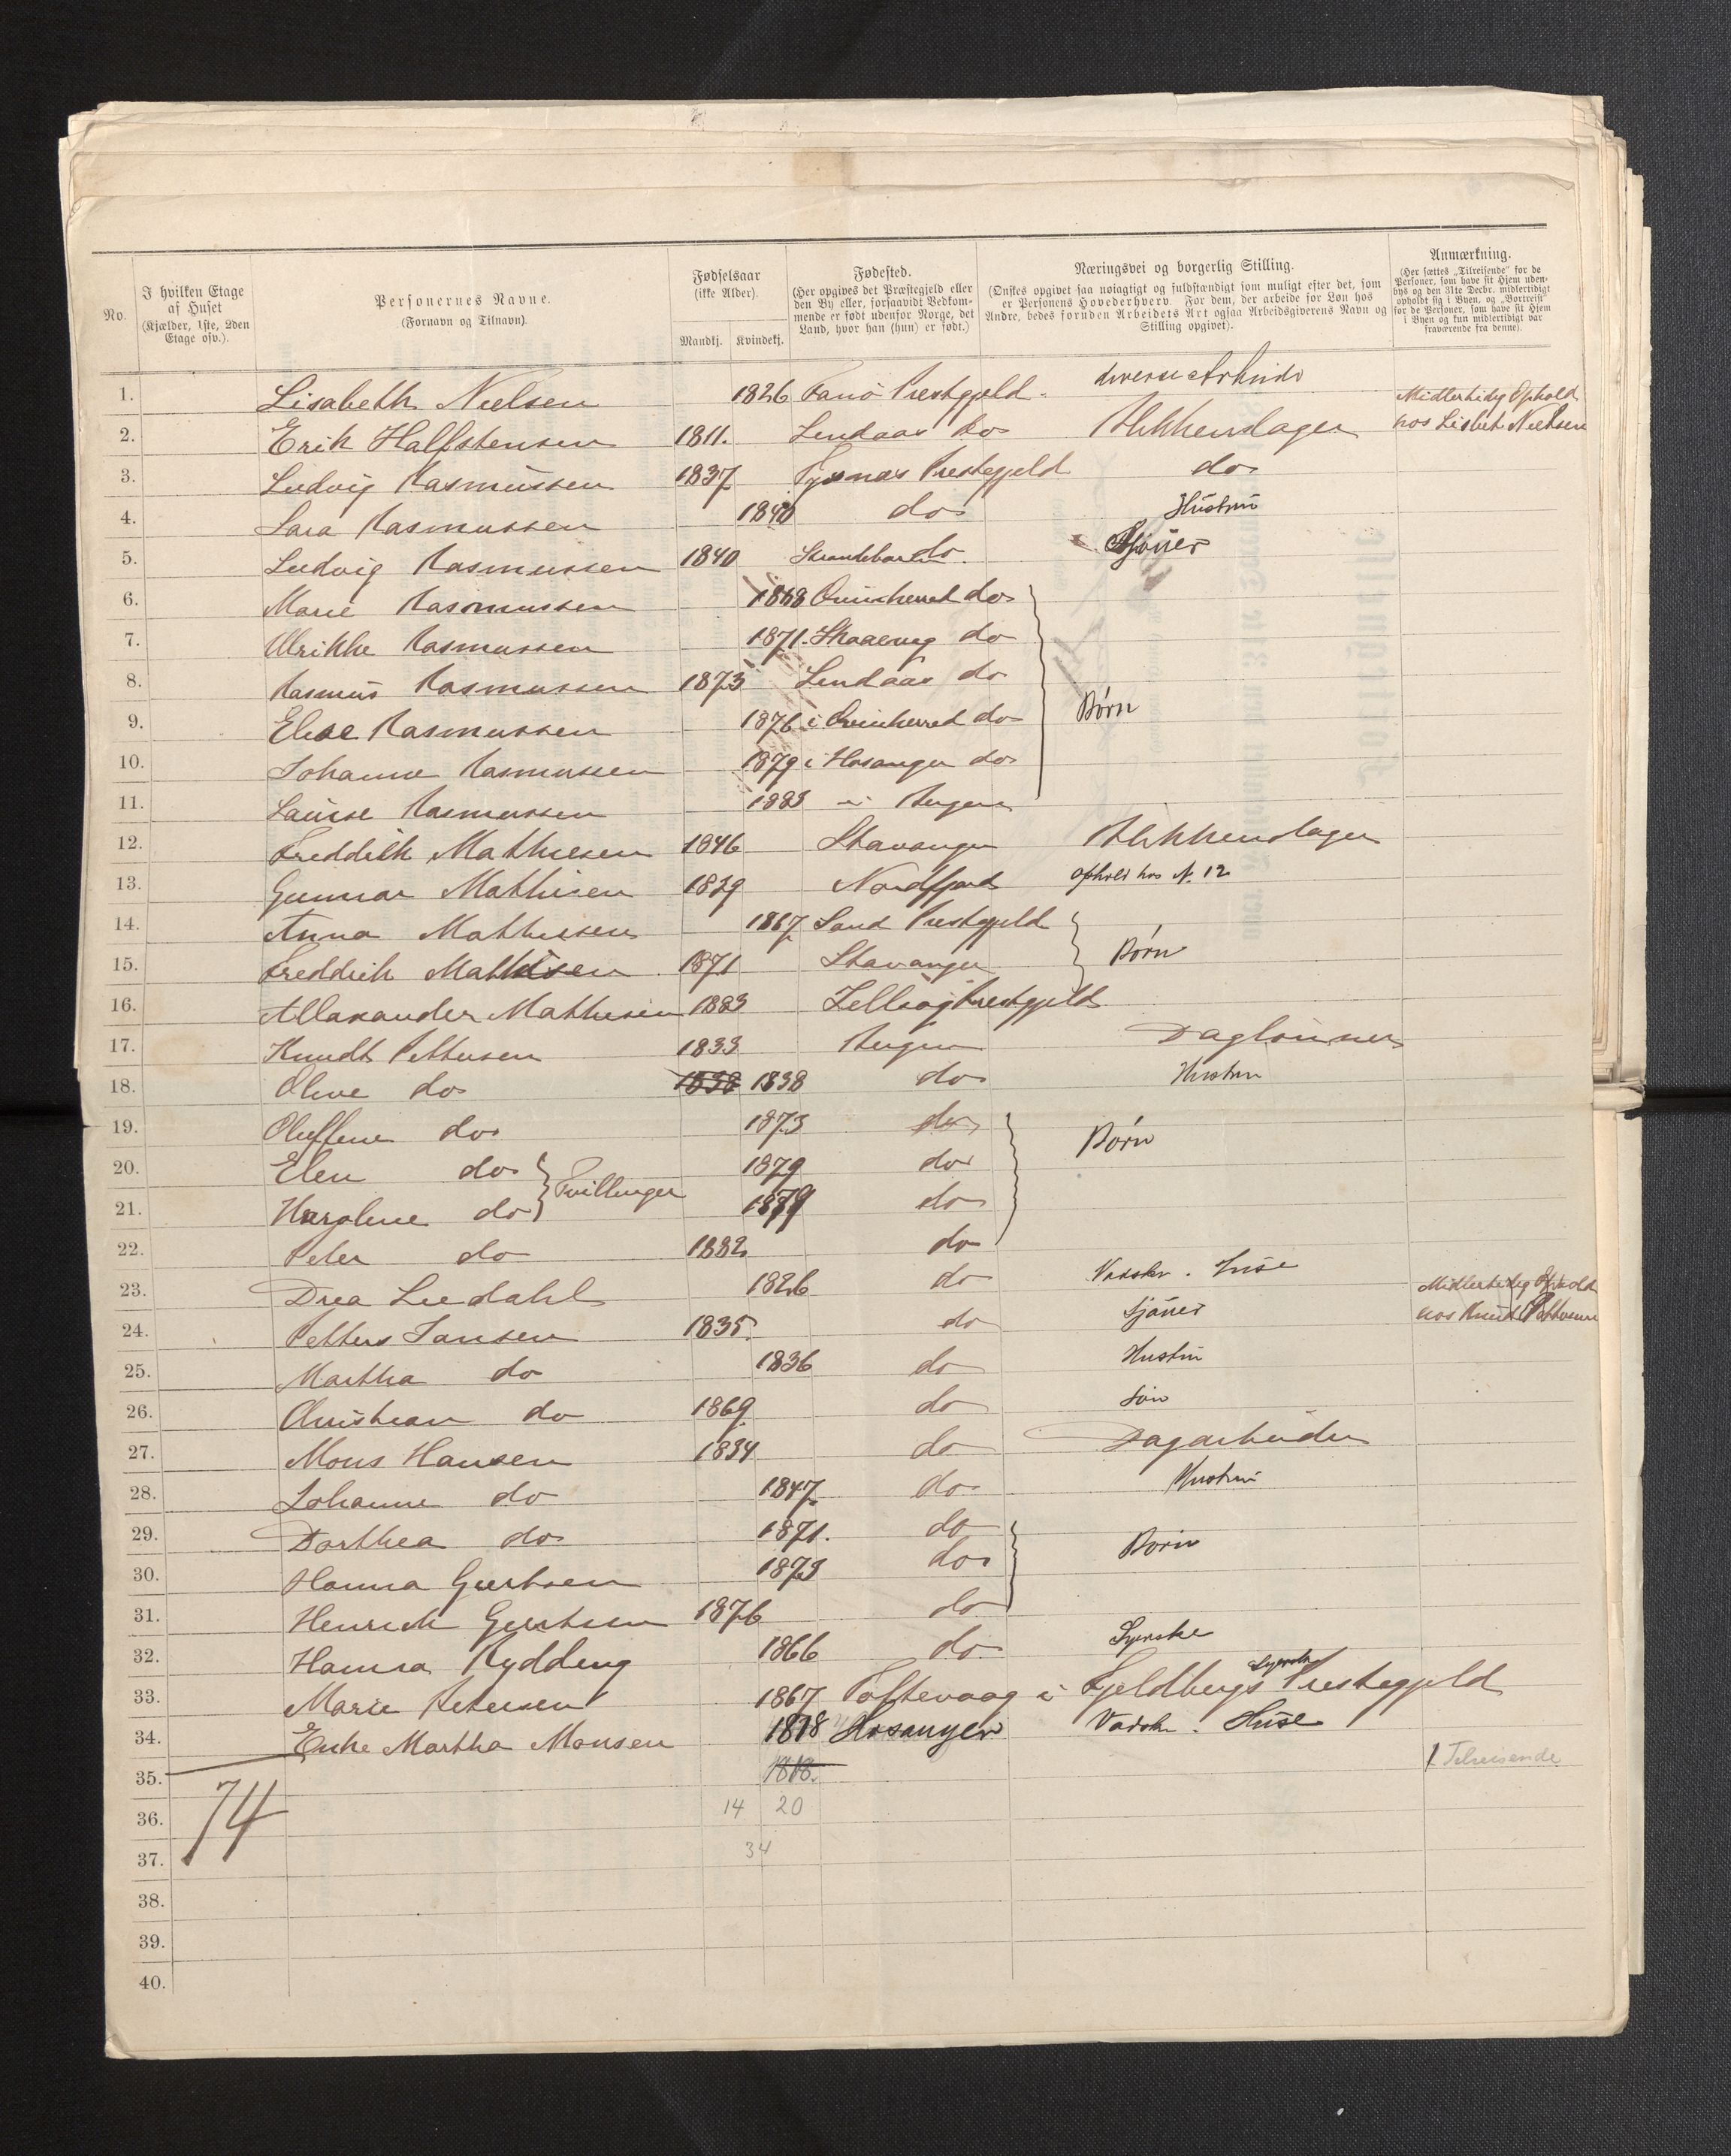 No.
I hvilken Etage af Huset (Kjælder, 1ste, 2den Etage osv.).
Personernes Navne. (Fornavn og Tilnavn).
Fødselsaar (ikke Alder).
Mandkj. Kvindekj.
Fødested. (Her opgives det Præstegjeld eller den By eller, forsaavidt Vedkommende er født udenfor Norge, det Land, hvor han (hun) er født.)
Næringsvei og borgerlig Stilling. (Ønskes opgivet saa nøiagtigt og fuldstændigt som muligt efter det, som er Personens Hovederhverv. For dem, der arbeide for Løn hos Andre, bedes foruden Arbeidets Art ogsaa Arbeidsgiverens Navn og Stilling opgivet).
Anmærkning. (Her sættes „Tilreisende" for de Personer, som have sit Hjem udenbys og den 31te Decbr. midlertidigt opholdt sig i Byen, og „Bortreist" for de Personer, som have sit Hjem i Byen og kun midlertidigt var fraværende fra denne).
1. Lisabeth Nielsen 1826 Fanø Prestgjeld. diverse Arbeide
2. Erik Halfstensen 1811. Lindaas do Blikkenslager Midlertidig Ophold hos Lisbet Nielsen
3. Ludvig Rasmussen 1837 Tysnæs Prestegjeld do
4. Sara Rasmussen 1840 do Hustru
5. Ludvig Rasmussen 1840 Strandebarm do. Sjøuer
6. Marie Rasmussen 1868 Qvinherred do
7. Ulrikke Rasmussen 1871. do
8. Rasmus Rasmussen 1873 Lindaas do
9. Elise Rasmussen 1876 i Qvinherred do Børn
10. Johanne Rasmussen 1879 i Hosanger do
11. Lauise Rasmussen 1883 i Bergen
12. Freddrik Mathiesen 1846 Stavanger Blikkenslager
13. Gunnar Mathisen 1829 Nordfjord Ophold hos N. 12
14. Anna Mathissen 1867 Sand Prestgjeld
15. Freddrik Mathisen 1871 Stavanger Børn
16. Allaxander Mathisen 1883 Prestgjeld
17. Knudt Pettersen 1833 Bergen Daglønner
18. Oline do 1838 1838 do Hustru
19. Oluffine do 1873 do Børn
20. Elen do 1879 do
Tvillinger
21. Karoline do 1879 do
22. Peter do 1882 do
23. Drea Liedahl 1826 do Vadsker. Huse Midlertidig Ophold
24. Petter Jansen 1835 do Sjøuer hos Knud Pettersen
25. Martha do 1836 do Hustru
26. Christian do 1869 do Søn
27. Mons Hansen 1834 do Dagarbeider
28. Johanne do 1847 do Hustru
29. Dorthea do 1871. do Børn
30. Hanna Geertsen 1873 do
31. Henrich Geertsen 1876 do
32. Hanna Rydding 1866 do Syerske
33. Marie Petersen 1867 Toftevaag i Fjeldbergs Prestegjeld Syerske
34. Enke Martha Monsen 1818 Hosanger Vadsker. Huse
35. 1818. 1 Tilreisende
36. 14 20
74
37. 34
38.
39.
40.